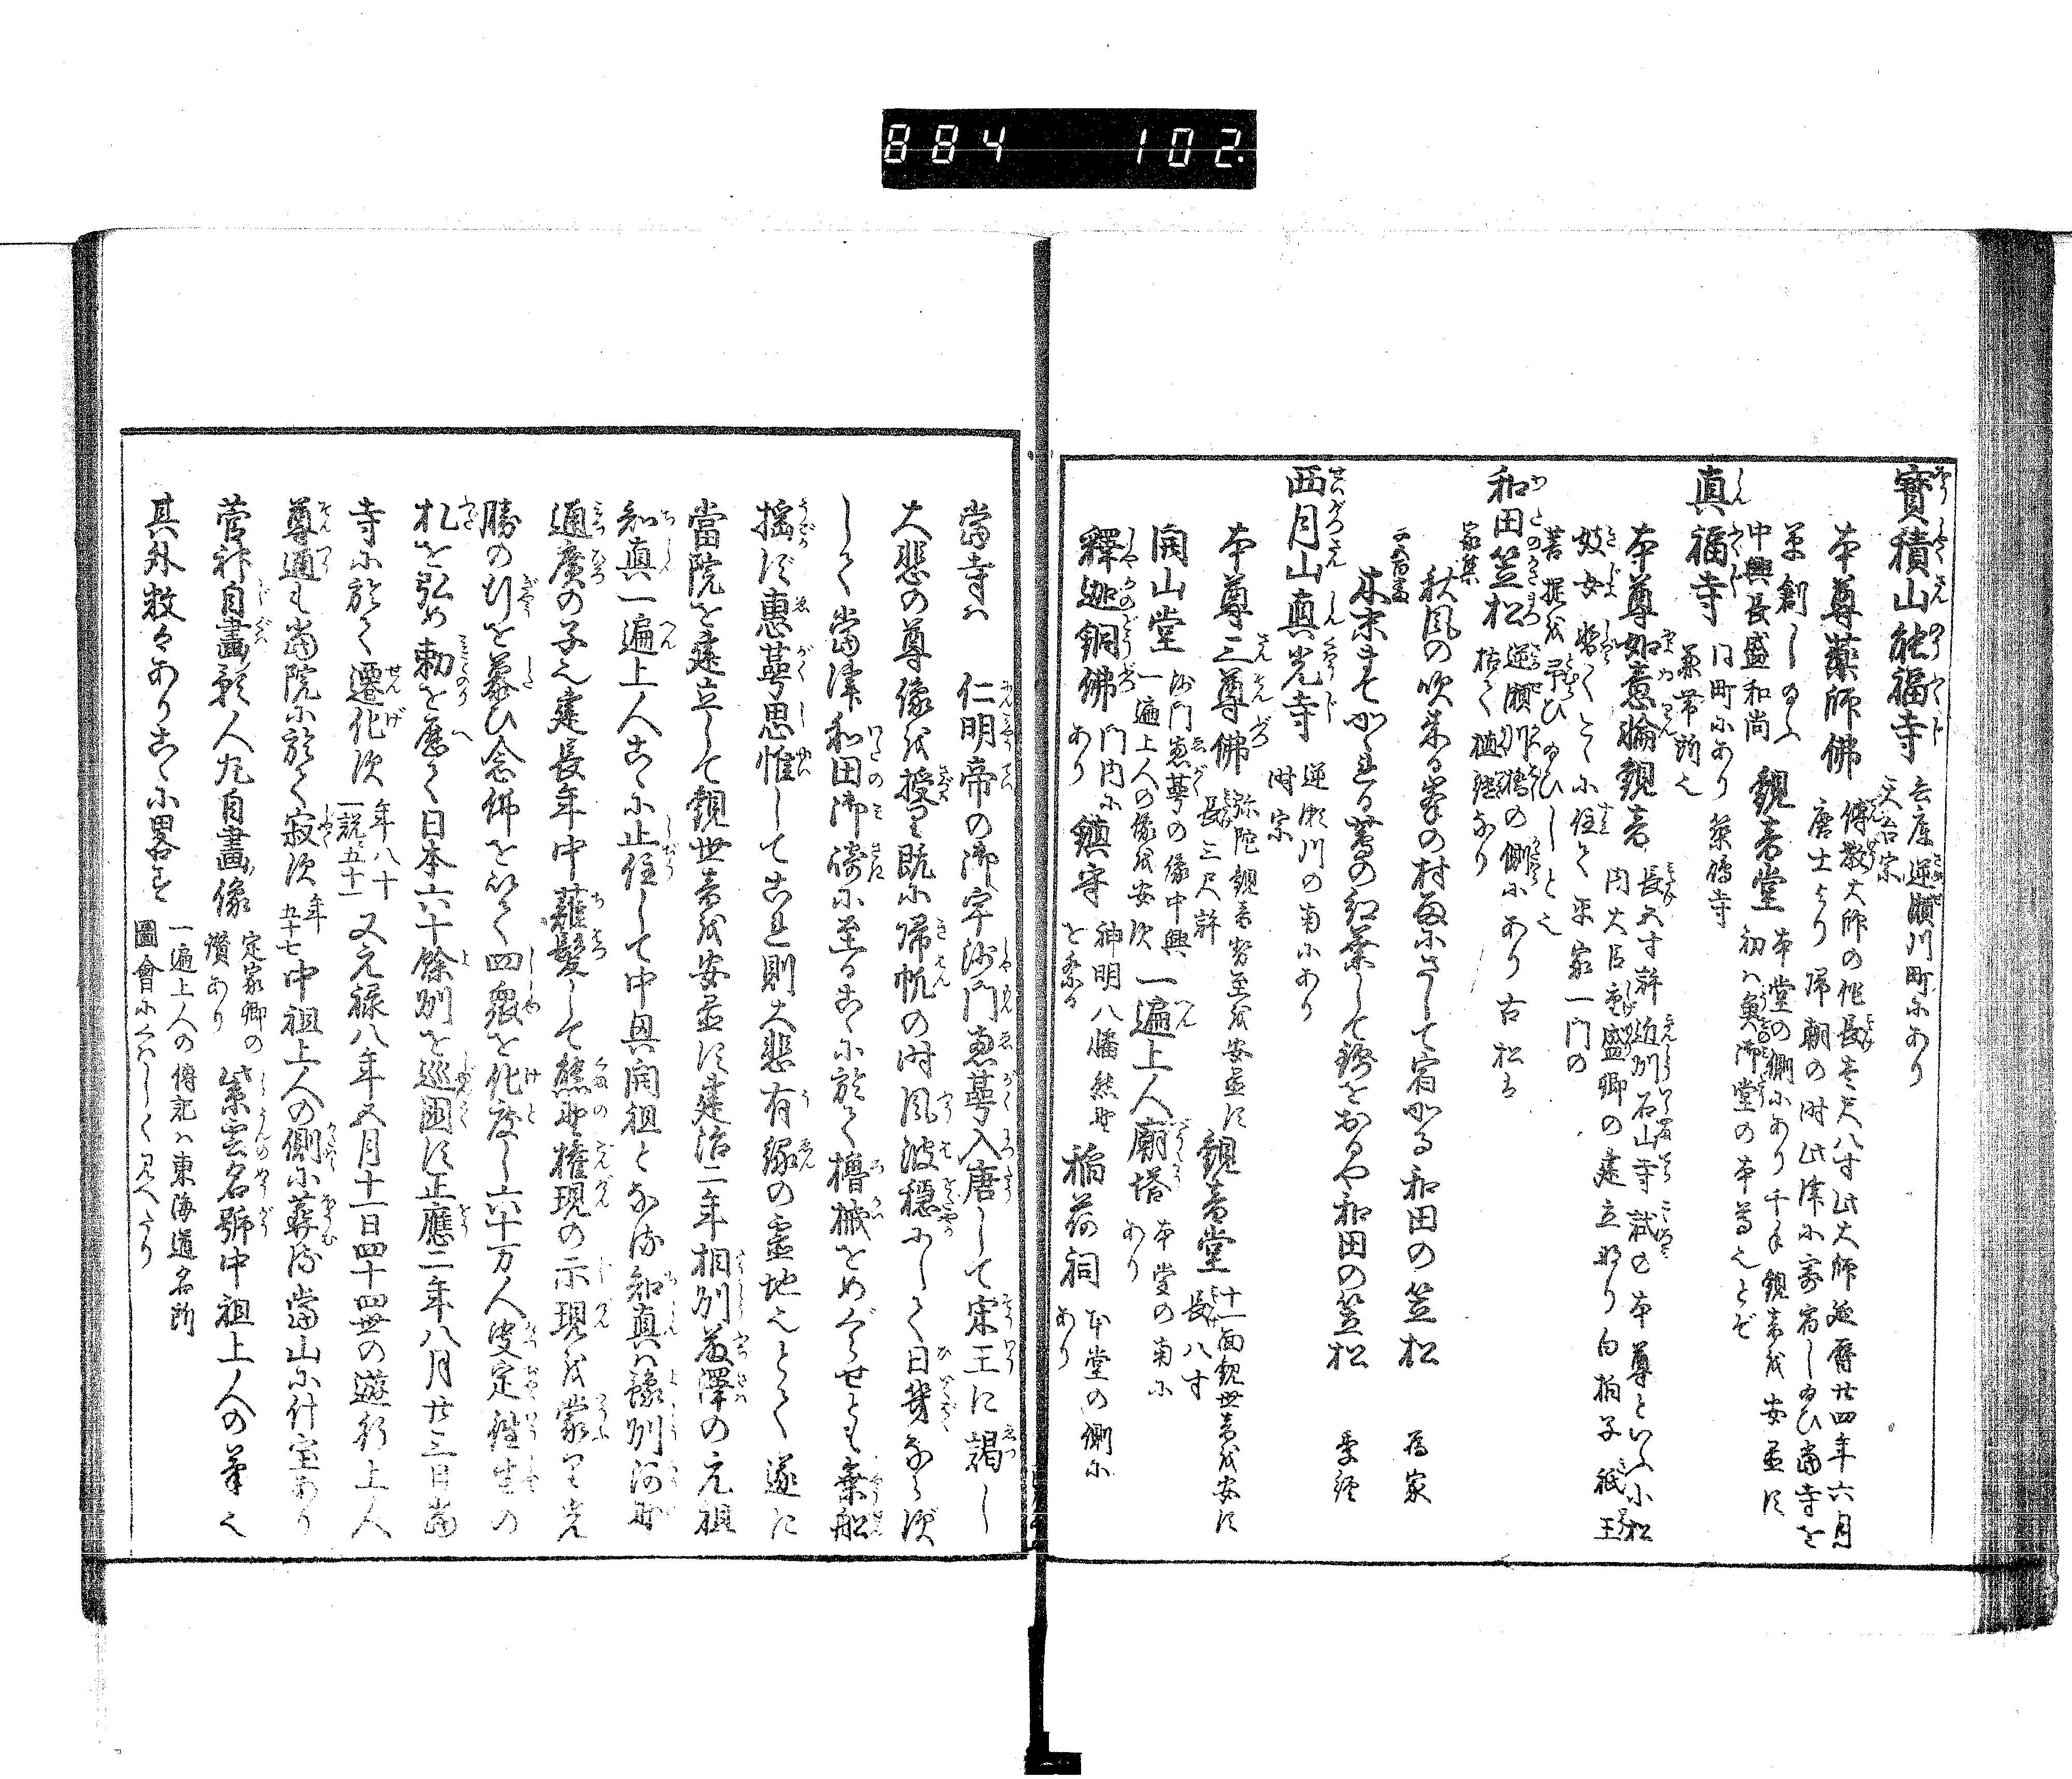 884 102
寶積山能福寺 兵庫逆瀬川町にあり 天台宗
本尊薬師佛 傳教大師の作長壱尺八寸此大師延暦廿四年六月唐土より帰朝の時此津に寄宿し給ひ當寺を
草創し給ふ 観音堂 本堂の側にあり千手観音を安置す
中興長盛和尚 初は奥御堂の本尊也とぞ
真福寺 同町にあり薬師寺兼帯所也
本尊如意輪観音 長五寸許近州石山寺試の本尊といふ小松内大臣重盛卿の建立なり白拍子祇王
妓女姉こゝに住て平家一門の菩提を弔ひ給ひしと也
和田笠松 逆瀬川橋の側にあり古松は枯て植継なり
家集
秋風の吹来る峯の村雨にさして宿かる和田の笠松 為家
未来まてかゝる蔦の紅葉して錦をおるや和田の笠松
西月山真光寺 逆瀬川の南にあり時宗
本尊三尊佛 弥陀観音勢至を安置す長三尺許 観音堂 十一面観世音を安す長八寸
開山堂 沙門恵萼の像中興一遍上人の像を安す 一遍上人廟塔 本堂の南にあり
釋迦銅佛 門内にあり 鎮守 神明八幡熊野を祭る 稲荷祠 本堂の側にあり
當寺は 仁明帝の御宇沙門恵萼入唐して宋王に謁し
大悲の尊像を授り既に帰帆の時風波穏にして日幾ならず
して當津和田御崎に至るこゝに於て櫓械をめぐらせども乗船
揺ず恵萼思惟してこれ則大悲有縁の霊地也とて遂に
當院を建立して観世音を安置す建治二年相州藤澤の元祖
知真一遍上人こゝに止住して中興開祖となる知真は豫州河野
通廣の子也建長年中薙髪して熊野権現の示現を蒙り光
勝の行を慕ひ念佛を以て四衆を化度し六十万人決定往生の
札を弘め勅を應て日本六十餘州を巡國す正應二年八月廿三日當
寺に於て遷化す 年八十一説五十一 又元禄八年五月十一日四十四世の遊行上人
尊通も當院に於て寂す 年五十七 中祖上人の側に葬る當山に什宝あり
菅神自畫影人丸自畫像 定家卿の讃あり 紫雲名號中祖上人の筆也
其外数多ありこゝに畧す 一遍上人の傳記は東海道名所圖會にくはしく見へたり